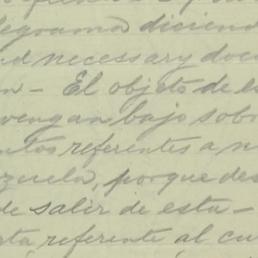 legrama diciend
d necessary doc
n - El objeto de l
vengan bajo sobr
ntos referentes a n
zuela, porque des
de salir de esta -
ta referente al cu